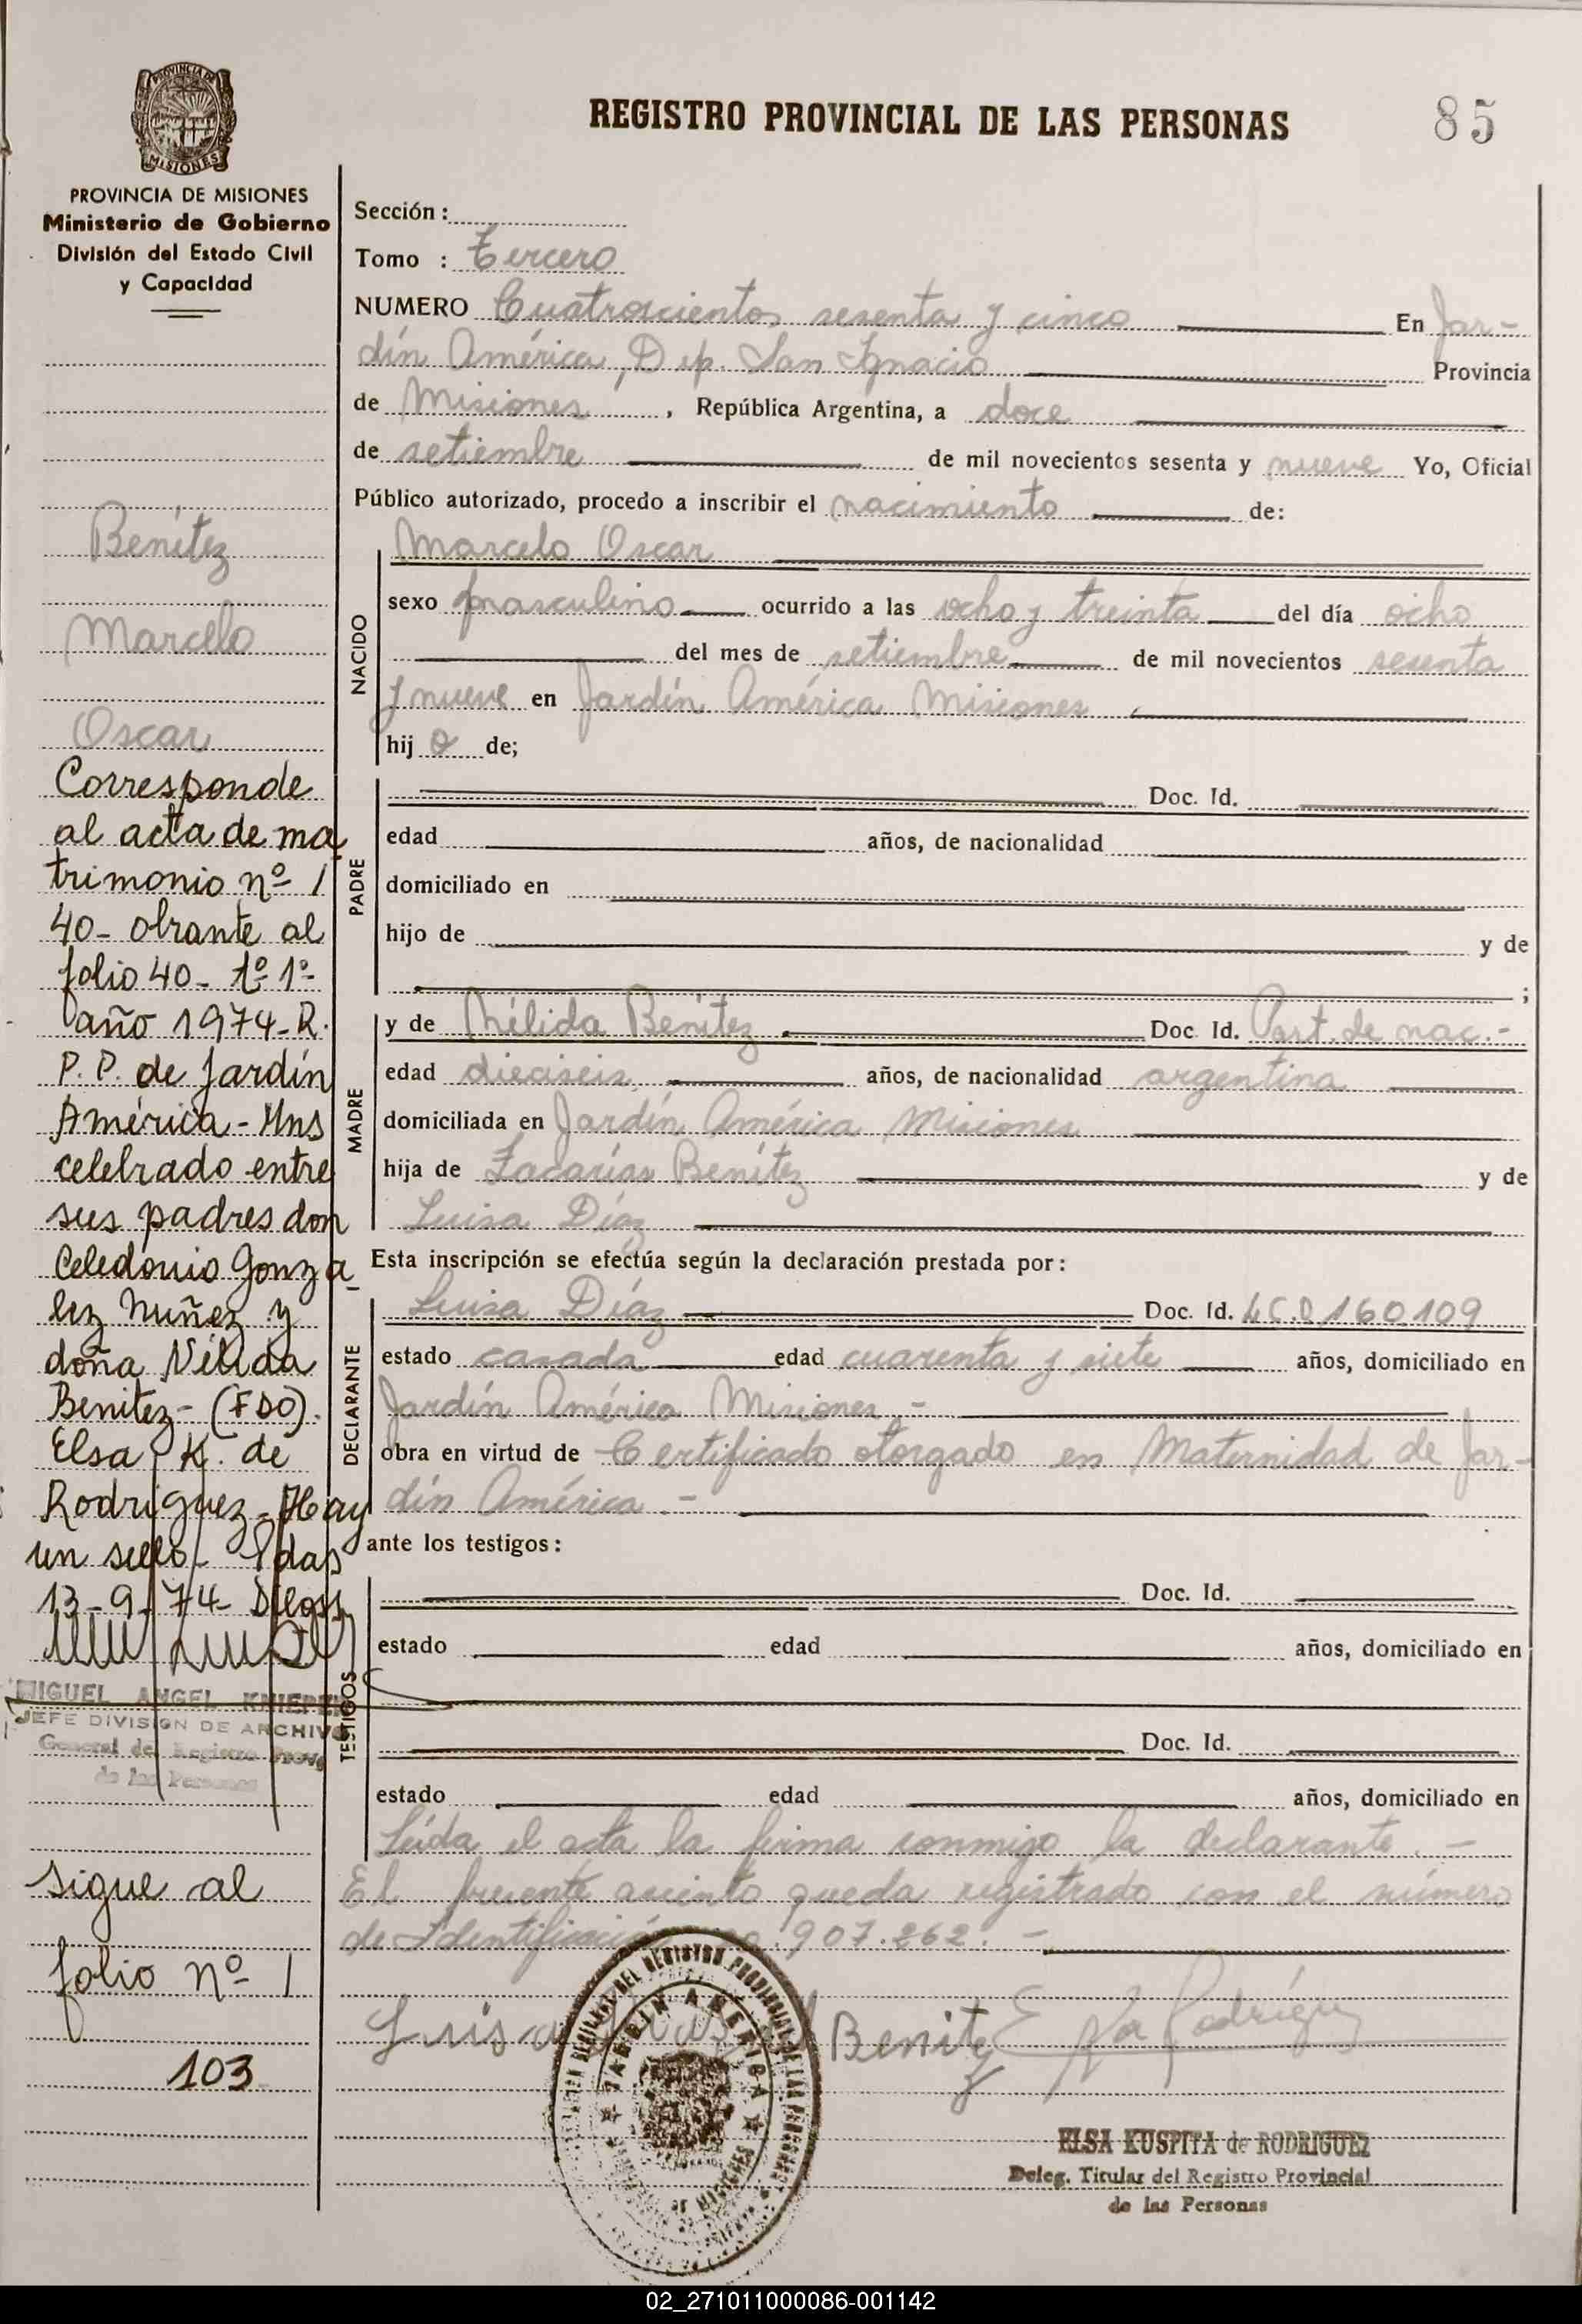 PROVINCIA DE
MISIONES
PROVINCIA DE MISIONES
Ministerio de Gobierno
División del Estado Civil
y Capacidad
Benítez
Marcelo
Oscar
Corresponde
al acta de ma
trimonio nº 1
40- obrante al
folio 40- tº 1º-
año 1974- R.
P. P. de Jardín
América- Mns
celebrado entre
sus padres don
Celedonio Gonzá
lez Nuñez y
doña Nélida
Benitez- (FDO).
Elsa K. de
Rodriguez- Hay
un sello- Pdas
13-9-74-
MIGUEL ANGEL KNIEPER
JEFE DIVISION DE ARCHIVO
General del Registro Prov.
de las Personas
sigue al
folio nº 1
103
REGISTRO PROVINCIAL DE LAS PERSONAS
85
Sección :
Tomo : Tercero
NUMERO Cuatrocientos sesenta y cinco En Jar-
dín América, Dep. San Ignacio Provincia
de Misiones , República Argentina, a doce
de setiembre de mil novecientos sesenta y nueve Yo, Oficial
Público autorizado, procedo a inscribir el nacimiento de:
NACIDO
Marcelo Oscar
sexo masculino ocurrido a las ocho y treinta del día ocho
del mes de setiembre de mil novecientos sesenta
y nueve en Jardín América Misiones
hij o de;
PADRE
Doc. Id.
edad años, de nacionalidad
domiciliado en
hijo de y de
;
MADRE
y de Nélida Benítez Doc. Id. Part. de nac.-
edad dieciseis años, de nacionalidad argentina
domiciliada en Jardín América Misiones
hija de Zacarías Benítez y de
Luisa Díaz
Esta inscripción se efectúa según la declaración prestada por :
DECLARANTE
Luisa Díaz Doc. Id. L.C.0.160.109
estado casada edad cuarenta y siete años, domiciliado en
Jardín América Misiones -
obra en virtud de Certificado otorgado en Maternidad de Jar-
dín América.-
ante los testigos :
TESTIGOS
Doc. Id.
estado edad años, domiciliado en
Doc. Id.
estado edad años, domiciliado en
Leída el acta la firma conmigo la declarante.-
El presente asiento queda registrado con el número
de Identificación 907.262.-
Luisa Benitez E K de Rodríguez
JARDIN AMERICA
MISIONES
ELSA KUSPITA de RODRIGUEZ
Deleg. Titular del Registro Provincial
de las Personas
02_271011000086-001142